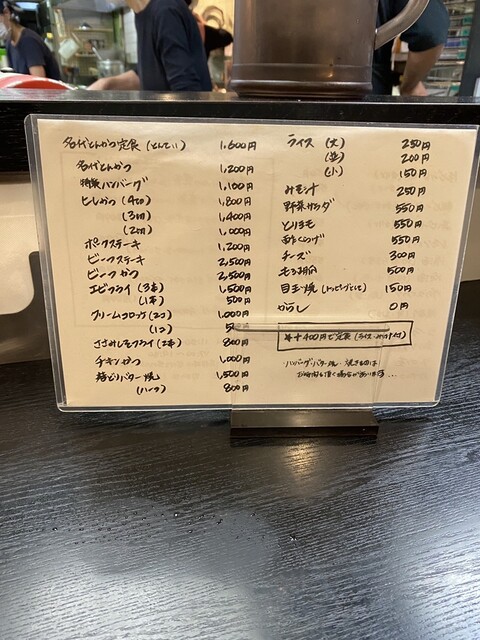 名代とんかつ定食 (とんてい) 1,600円
名代とんかつ 1,200円
特製ハンバーグ 1,100円
ヒレかつ (4コ) 1,800円
(3切) 1,400円
(2切) 1,000円
ポークステーキ 1,200円
ビーフステーキ 2,500円
ビーフかつ 2,500円
エビフライ (3本) 1,500円
(1本) 500円
クリームコロッケ (2コ) 1,000円
(1コ)
ささみしそフライ (2本) 800円
チキンかつ 1,000円
若どりバター焼 1,500円
(ハーフ) 800円
ライス (大) 250円
(並) 200円
(小) 150円
みそ汁 250円
野菜サラダ 550円
とりもも 550円
550円
チーズ 300円
もろ胡瓜 500円
目玉焼 (トッピングとして) 150円
からし 0円
*+400円で定食 (ライス・みそ汁付)
ハンバーグ・バター焼・焼きものは
お時間を頂く場合があります...